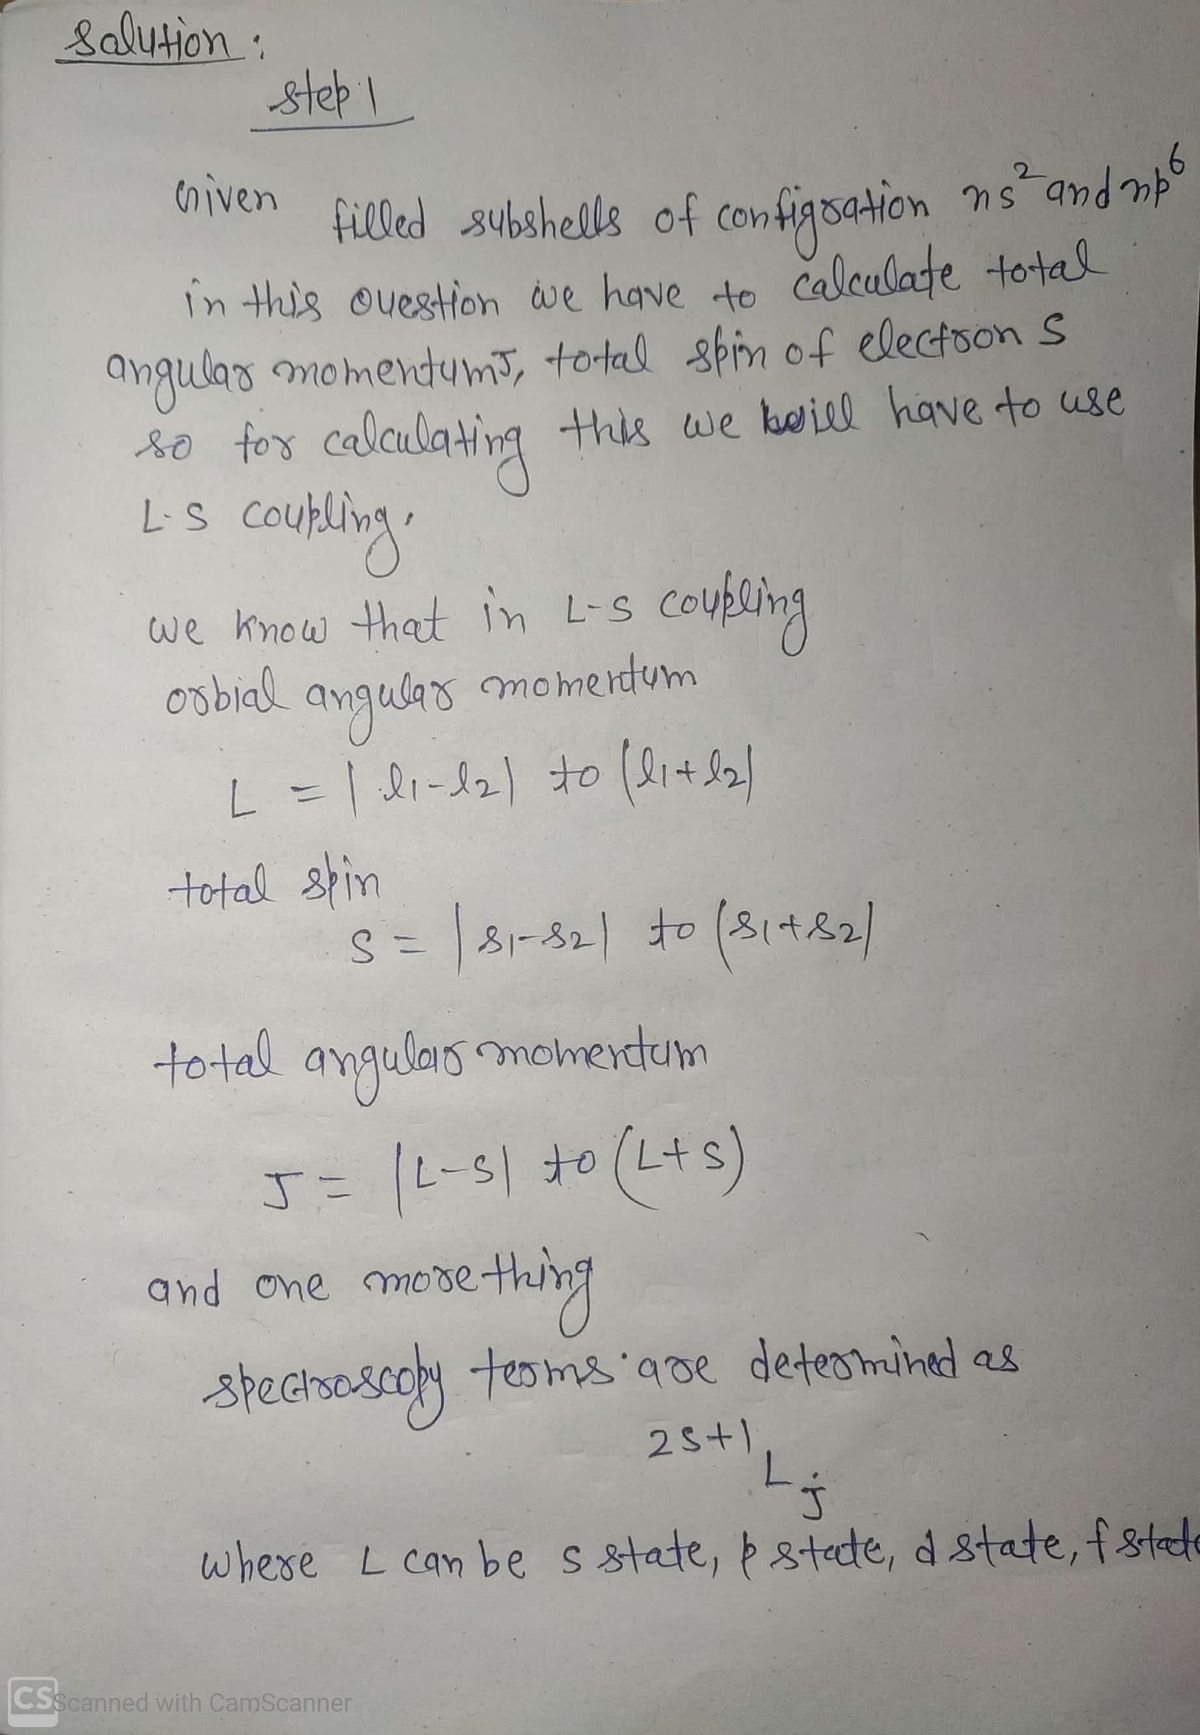 Solution :
step 1
Given filled subshells of configration ns² and np⁶
in this question we have to calculate total
angular momentum J, total spin of electron S
so for calculating this we will have to use
L-S coupling.
we know that in L-S coupling
orbial angular momentum
L = |l1-l2| to (l1+l2|
total spin
S = |s1-s2| to (s1+s2|
total angular momentum
J = |L-S| to (L+S)
and one more thing
spectroscopy terms are determined as
2S+1
L j
where L can be s state, p state, d state, f state
CS Scanned with CamScanner